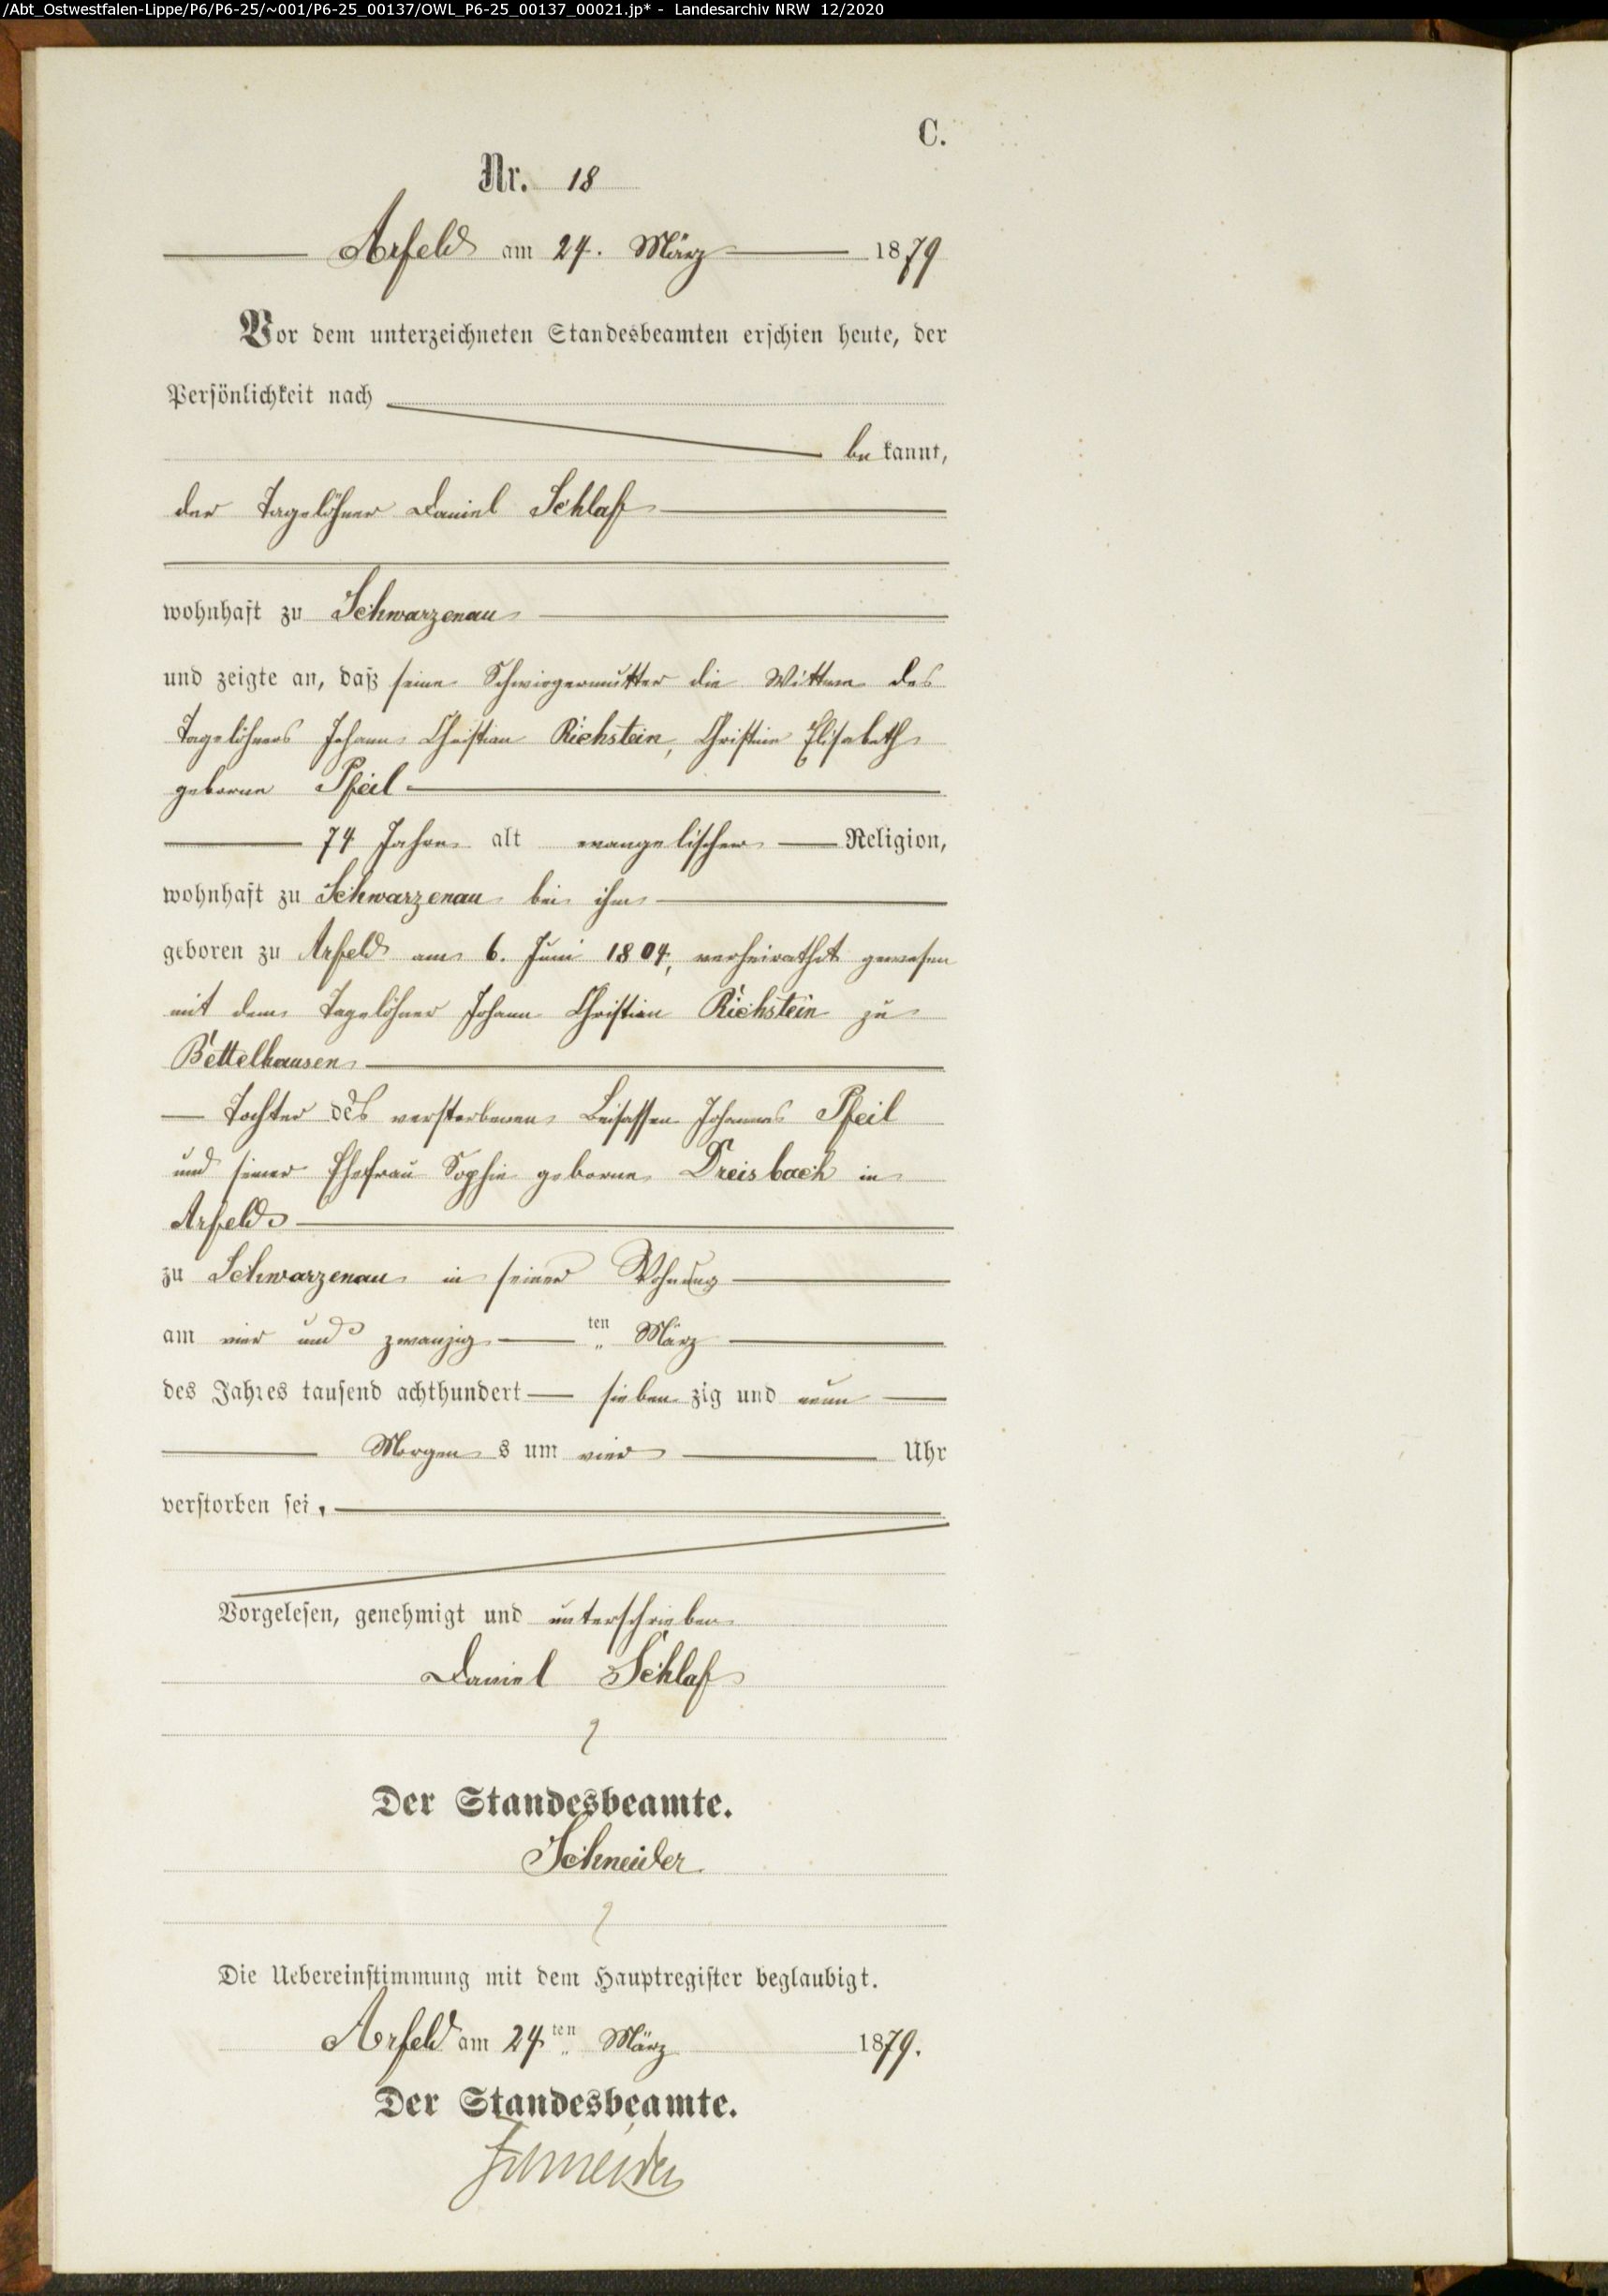 /Abt_Ostwestfalen-Lippe/P6/P6-25/~001/P6-25_00137/OWL_P6-25_00137_00021.jp* - Landesarchiv NRW 12/2020
C.
Nr. 18
Arfeld am 24. März 1879
Vor dem unterzeichneten Standesbeamten erschien heute, der
Persönlichkeit nach
be kannt,
der Tagelöhner Daniel Schlaf
wohnhaft zu Schwarzenau
und zeigte an, daß seine Schwiegermutter die Wittwe des
Tagelöhners Johann Christian Richstein, Christine Elisabeth
geborne Pfeil
74 Jahre alt evangelischer Religion,
wohnhaft zu Schwarzenau bei ihm
geboren zu Arfeld am 6. Juni 1804, verheirathet gewesen
mit dem Tagelöhner Johann Christian Richstein zu
Bettelhausen
Tochter des verstorbenen Beisassen Johannes Pfeil
und seiner Ehefrau Sophie geborne Dreisbach in
Arfeld
zu Schwarzenau in seiner Wohnung
am vier und zwanzig ten März
des Jahres tausend achthundert sieben zig und neun
Morgen s um vier Uhr
verstorben sei.
Vorgelesen, genehmigt und unterschrieben
Daniel Schlaf
Der Standesbeamte.
Schneider
Die Uebereinstimmung mit dem Hauptregister beglaubigt.
Arfeld am 24ten März 1879.
Der Standesbeamte.
Schneider